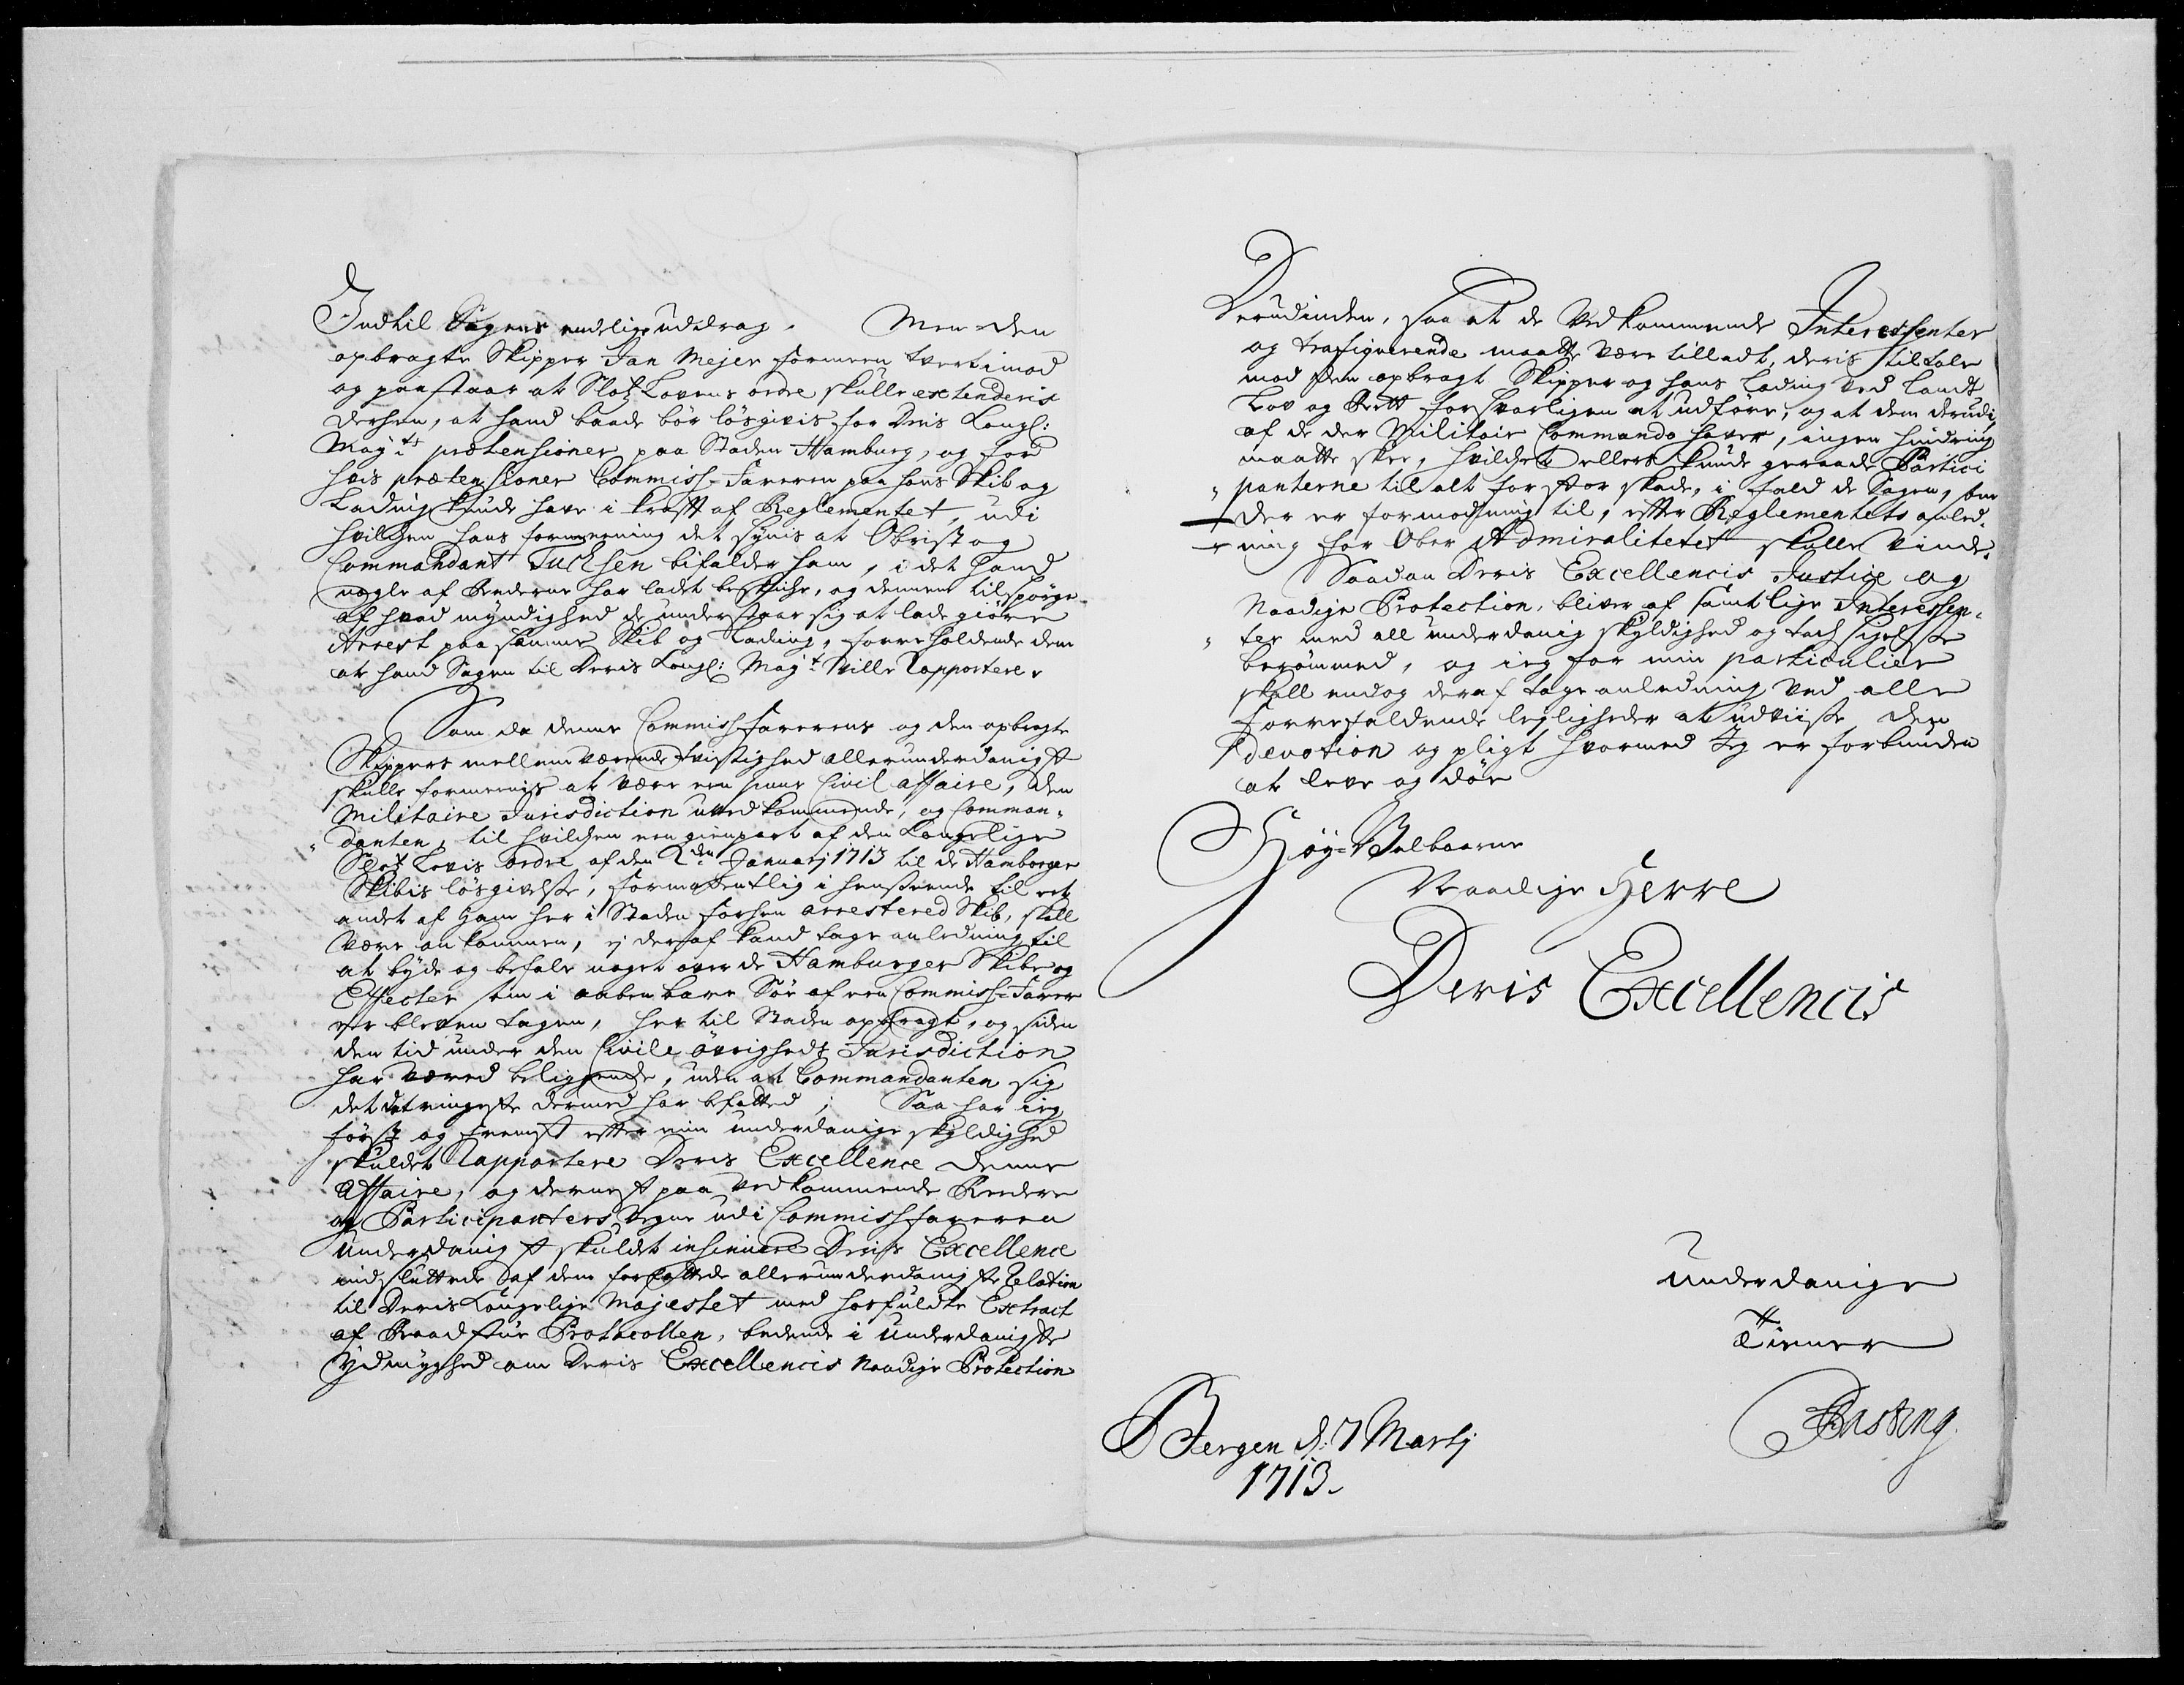 Indtil Sagens endelige uddrag. Men den
opbragte Skipper Jan Mejer formeen tvertimod
og paastaar at Slotz Lovens ordre skulle extenderis
derhen, at hand baade bör lösgivis for Deris Kongl:
Mayts prætensioner paa Staden Hamburg, og for
hvis prætensioner Commiss-Fareren paa hans Skib og
Ladning kunde have i krafft af Reglementet, udi
hvilchen hans formeening det synis at Obrist og
Commandant Tuchsen bifalder ham, i det hand
nogle af Rederne har ladet beskiche, og dennem tilspörge
af hvad myndighed de understaar sig at lade giöre
Arrest paa samme Skib og Lading, forre holdende dem
at hand Sagen til Deris Kongl: Mayt ville rapportere.
Som da denne Commissfarerens og den opbragte
Skippers mellemværende tvistighed allerunderdanigst
skulle formeenis at være een puur Civil affaire, den
Militaire Jurisdiction uvedkommende, og Comman-
danten, til hvilchen een gienpart af den Kongelige
Slotz Lovis ordre af den 2den Januarj 1713 til de Hamborger
Skibis lösgivelse, formodentlig i henseende til eet
andet af ham her i Staden forhen arresteret Skib, skall
være ankommen, ej deraf kand tage anledning til
at byde og befale noget over de Hamburger Skibe og
Effecter som i aabenbare Söe af een Commiss-Farer
er bleven tagen, her til Staden opbragt, og siden
den tid under den Civile övrigheds Jurisdiction
har væred beliggende, uden at Commandanten sig
det det ringeste dermed har befatted; Saa har ieg
först og fremst effter min underdanige skyldighed
skuldet rapportere Deris Excellence denne
Affaire, og dernest paa vedkommende Reedere
og Participanters vegne udi Commissfareren
underdanigst skuldet insinuere Deris Excellence
indsluttede af dem forfattede allerunderdanigste Relation
til Deris Kongelige Majestet med hosfuldte Extract
af Raadstue Prothcollen, bedende i underdanigste
ydmyghed om Deris Excellencis Naadige Protection
Derudinden, saa at de Vedkommende Interessenter
og trafiquerende maatte være tilladt, deris tiltale
mod den opbragt Skipper og hans Lading ved Lands
Lov og Rett forsvarligen at udföre, og at dem derudi,
af de der Militair Commando haver, ingen hindring
maatte skee, hvilchet ellers kunde geraade Partici
panterne til alt for stor skade, i fald de Sagen, som
der er formodning til, effter Reglementets anled-
ning for Ober Admiralitetet skulle vinde.
Saadan Deris Excellencis Justice og
Naadige Protection, bliver af samtlige Interessen-
ter med all underdanig skyldighed og tachsigelse
berömmed, og ieg for min particulier
skall endog deraf tage anledning ved alle
forrefaldende leyligheder at udviise den
devotion og pligt hvormed Jeg er forbunden
at leve og döe
Höy-Velbaarne
Naadige Herre
Deris Excellencis
underdanige
Tiener
Bergen d: 7 Martj
1713.